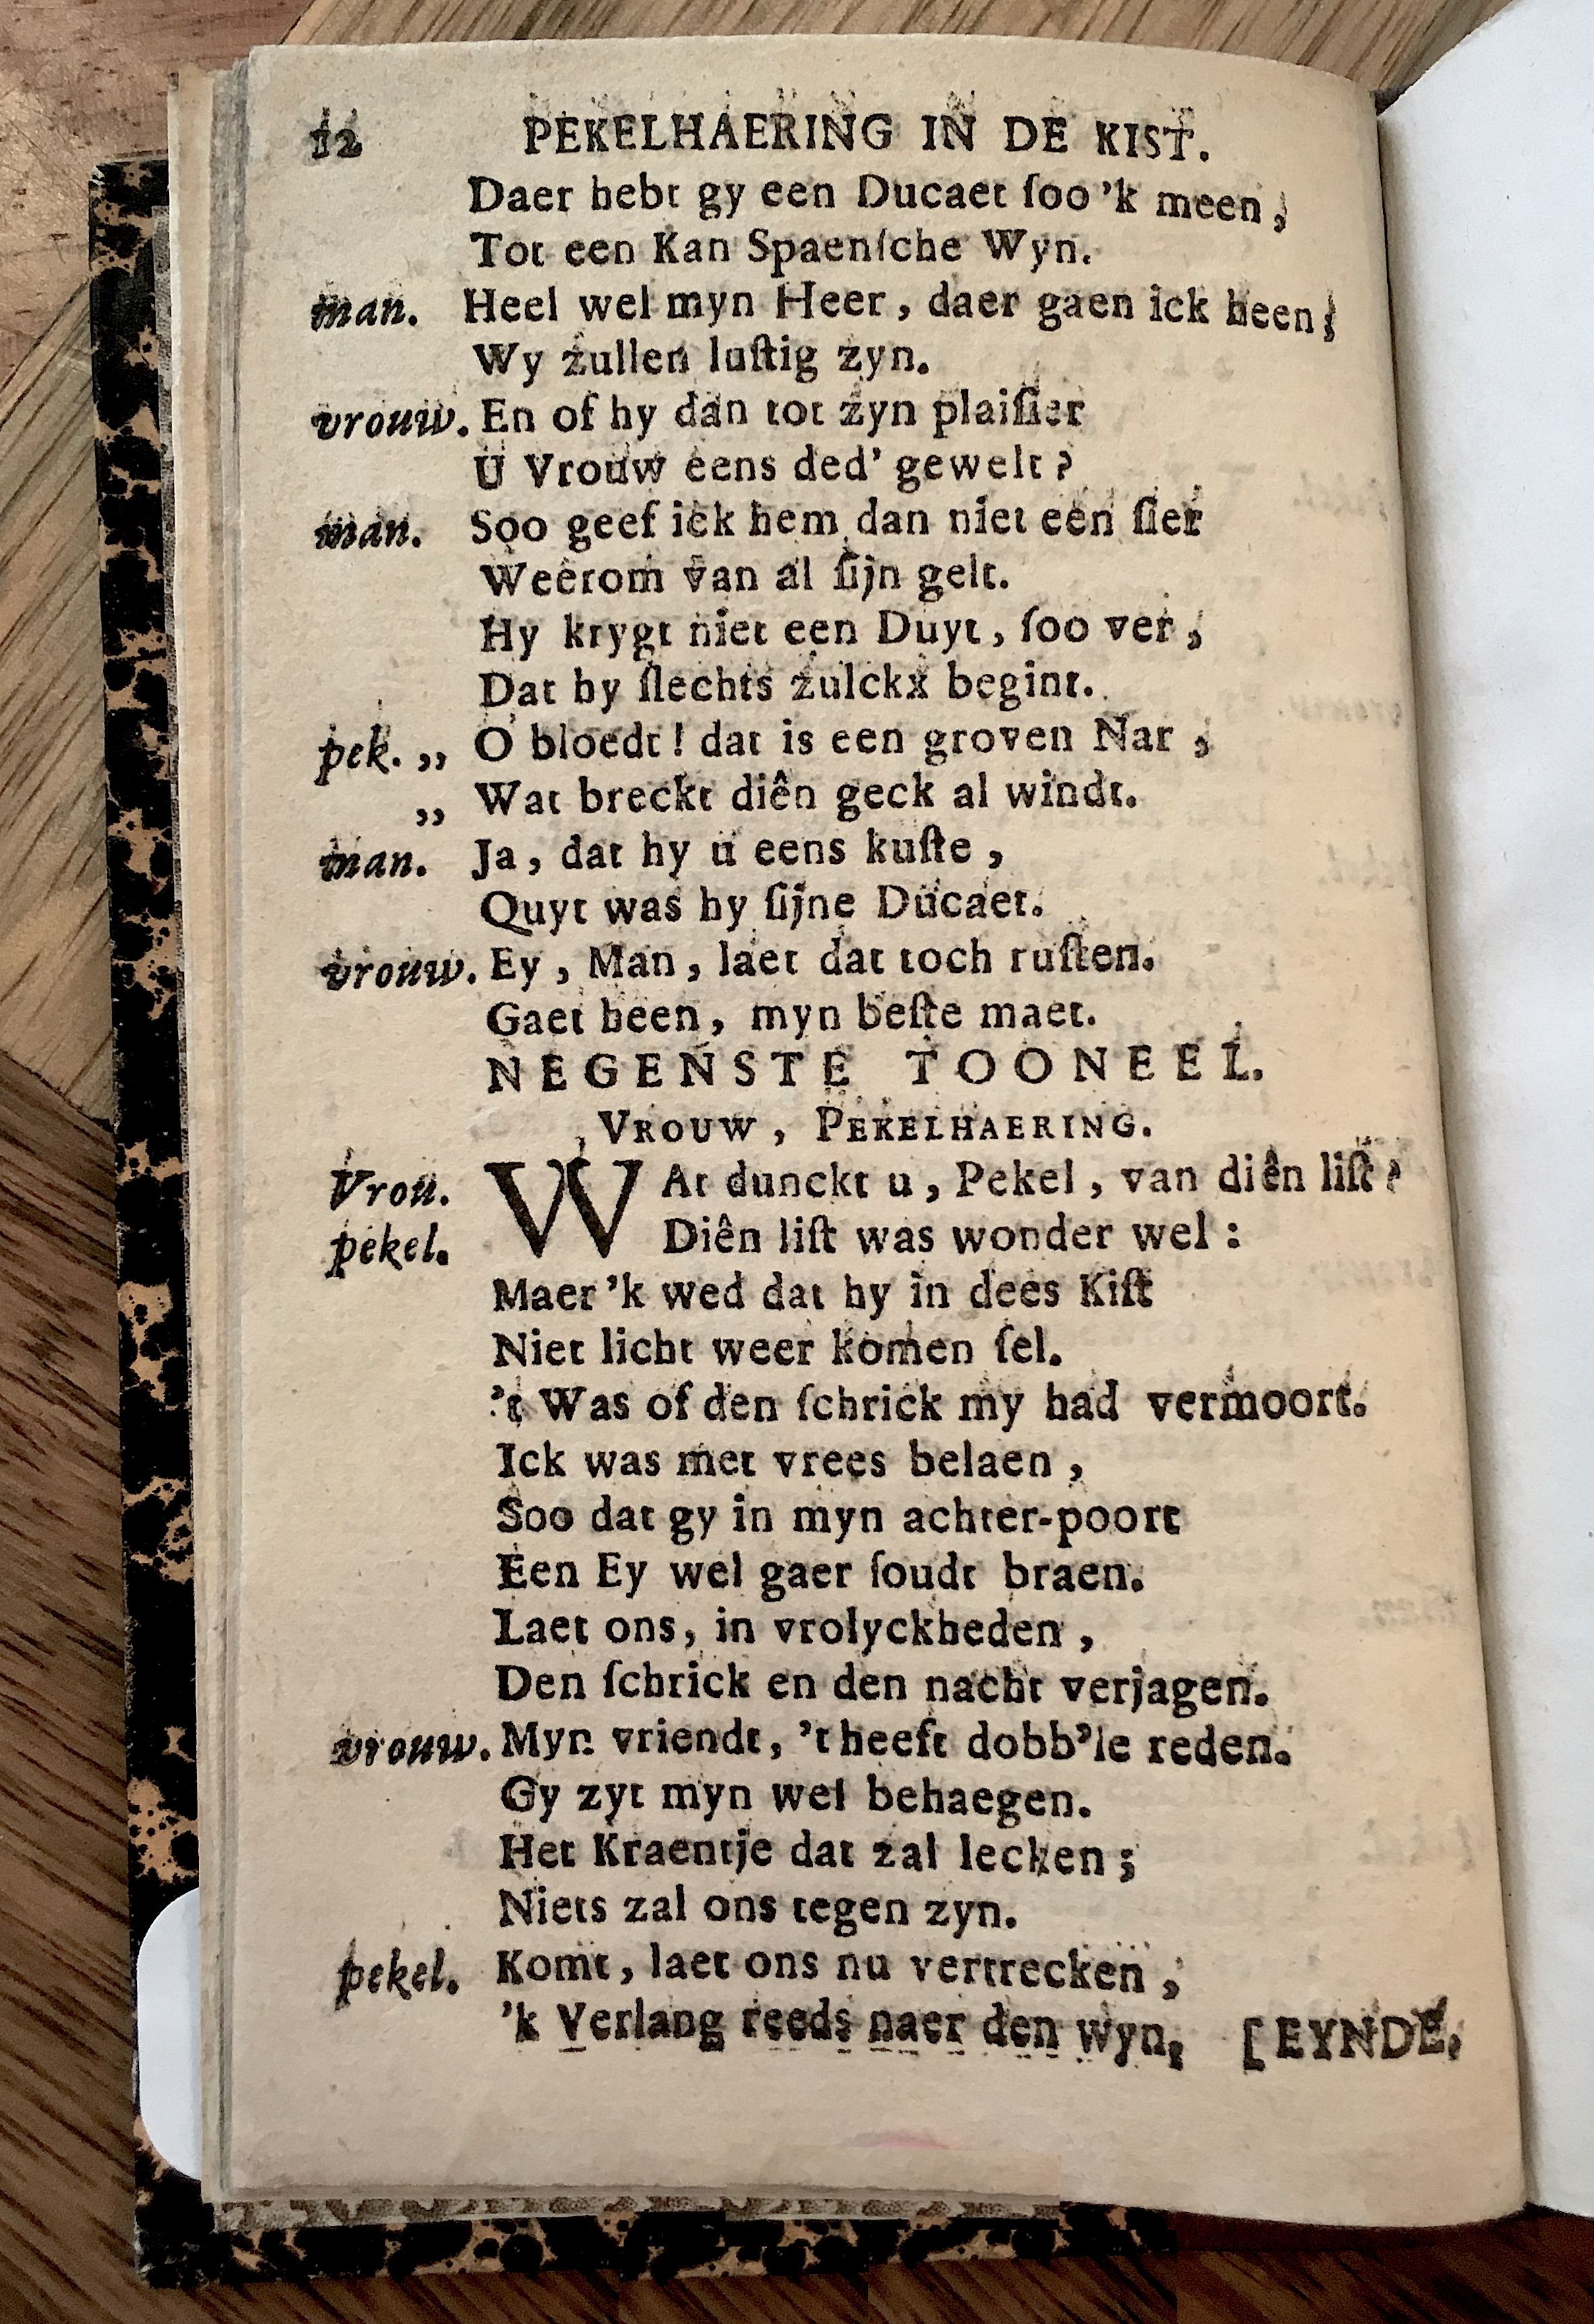 12 PEKELHAERING IN DE KIST.
Daer hebt gy een Ducaet ſoo 'k meen,
Tot een Kan Spaenſche Wyn.
man. Heel wel myn Heer, daer gaen ick heen;
Wy zullen luſtig zyn.
vrouw. En of hy dan tot zyn plaiſier
U Vrouw eens ded' gewelt?
man. Soo geef ick hem dan niet een ſier
Weerom van al ſijn gelt.
Hy krygt niet een Duyt, ſoo ver,
Dat hy ſlechts zulckx begint.
pek. „ O bloedt! dat is een groven Nar,
„ Wat breckt diên geck al windt.
man. Ja, dat hy u eens kuſte,
Quyt was hy ſijne Ducaet.
vrouw. Ey, Man, laet dat toch ruſten.
Gaet heen, myn beſte maet.
NEGENSTE TOONEEL.
VROUW, PEKELHAERING.
Vrou. WAt dunckt u, Pekel, van diên liſt?
pekel. Diên liſt was wonder wel:
Maer 'k wed dat hy in dees Kiſt
Niet licht weer komen ſel.
't Was of den ſchrick my had vermoort.
Ick was met vrees belaen,
Soo dat gy in myn achter-poort
Een Ey wel gaer ſoudt braen.
Laet ons, in vrolyckheden,
Den ſchrick en den nacht verjagen.
vrouw. Myn vriendt, 't heeft dobb'le reden.
Gy zyt myn wel behaegen.
Het Kraentje dat zal lecken;
Niets zal ons tegen zyn.
pekel. Komt, laet ons nu vertrecken,
'k Verlang reeds naer den wyn. [EYNDE.